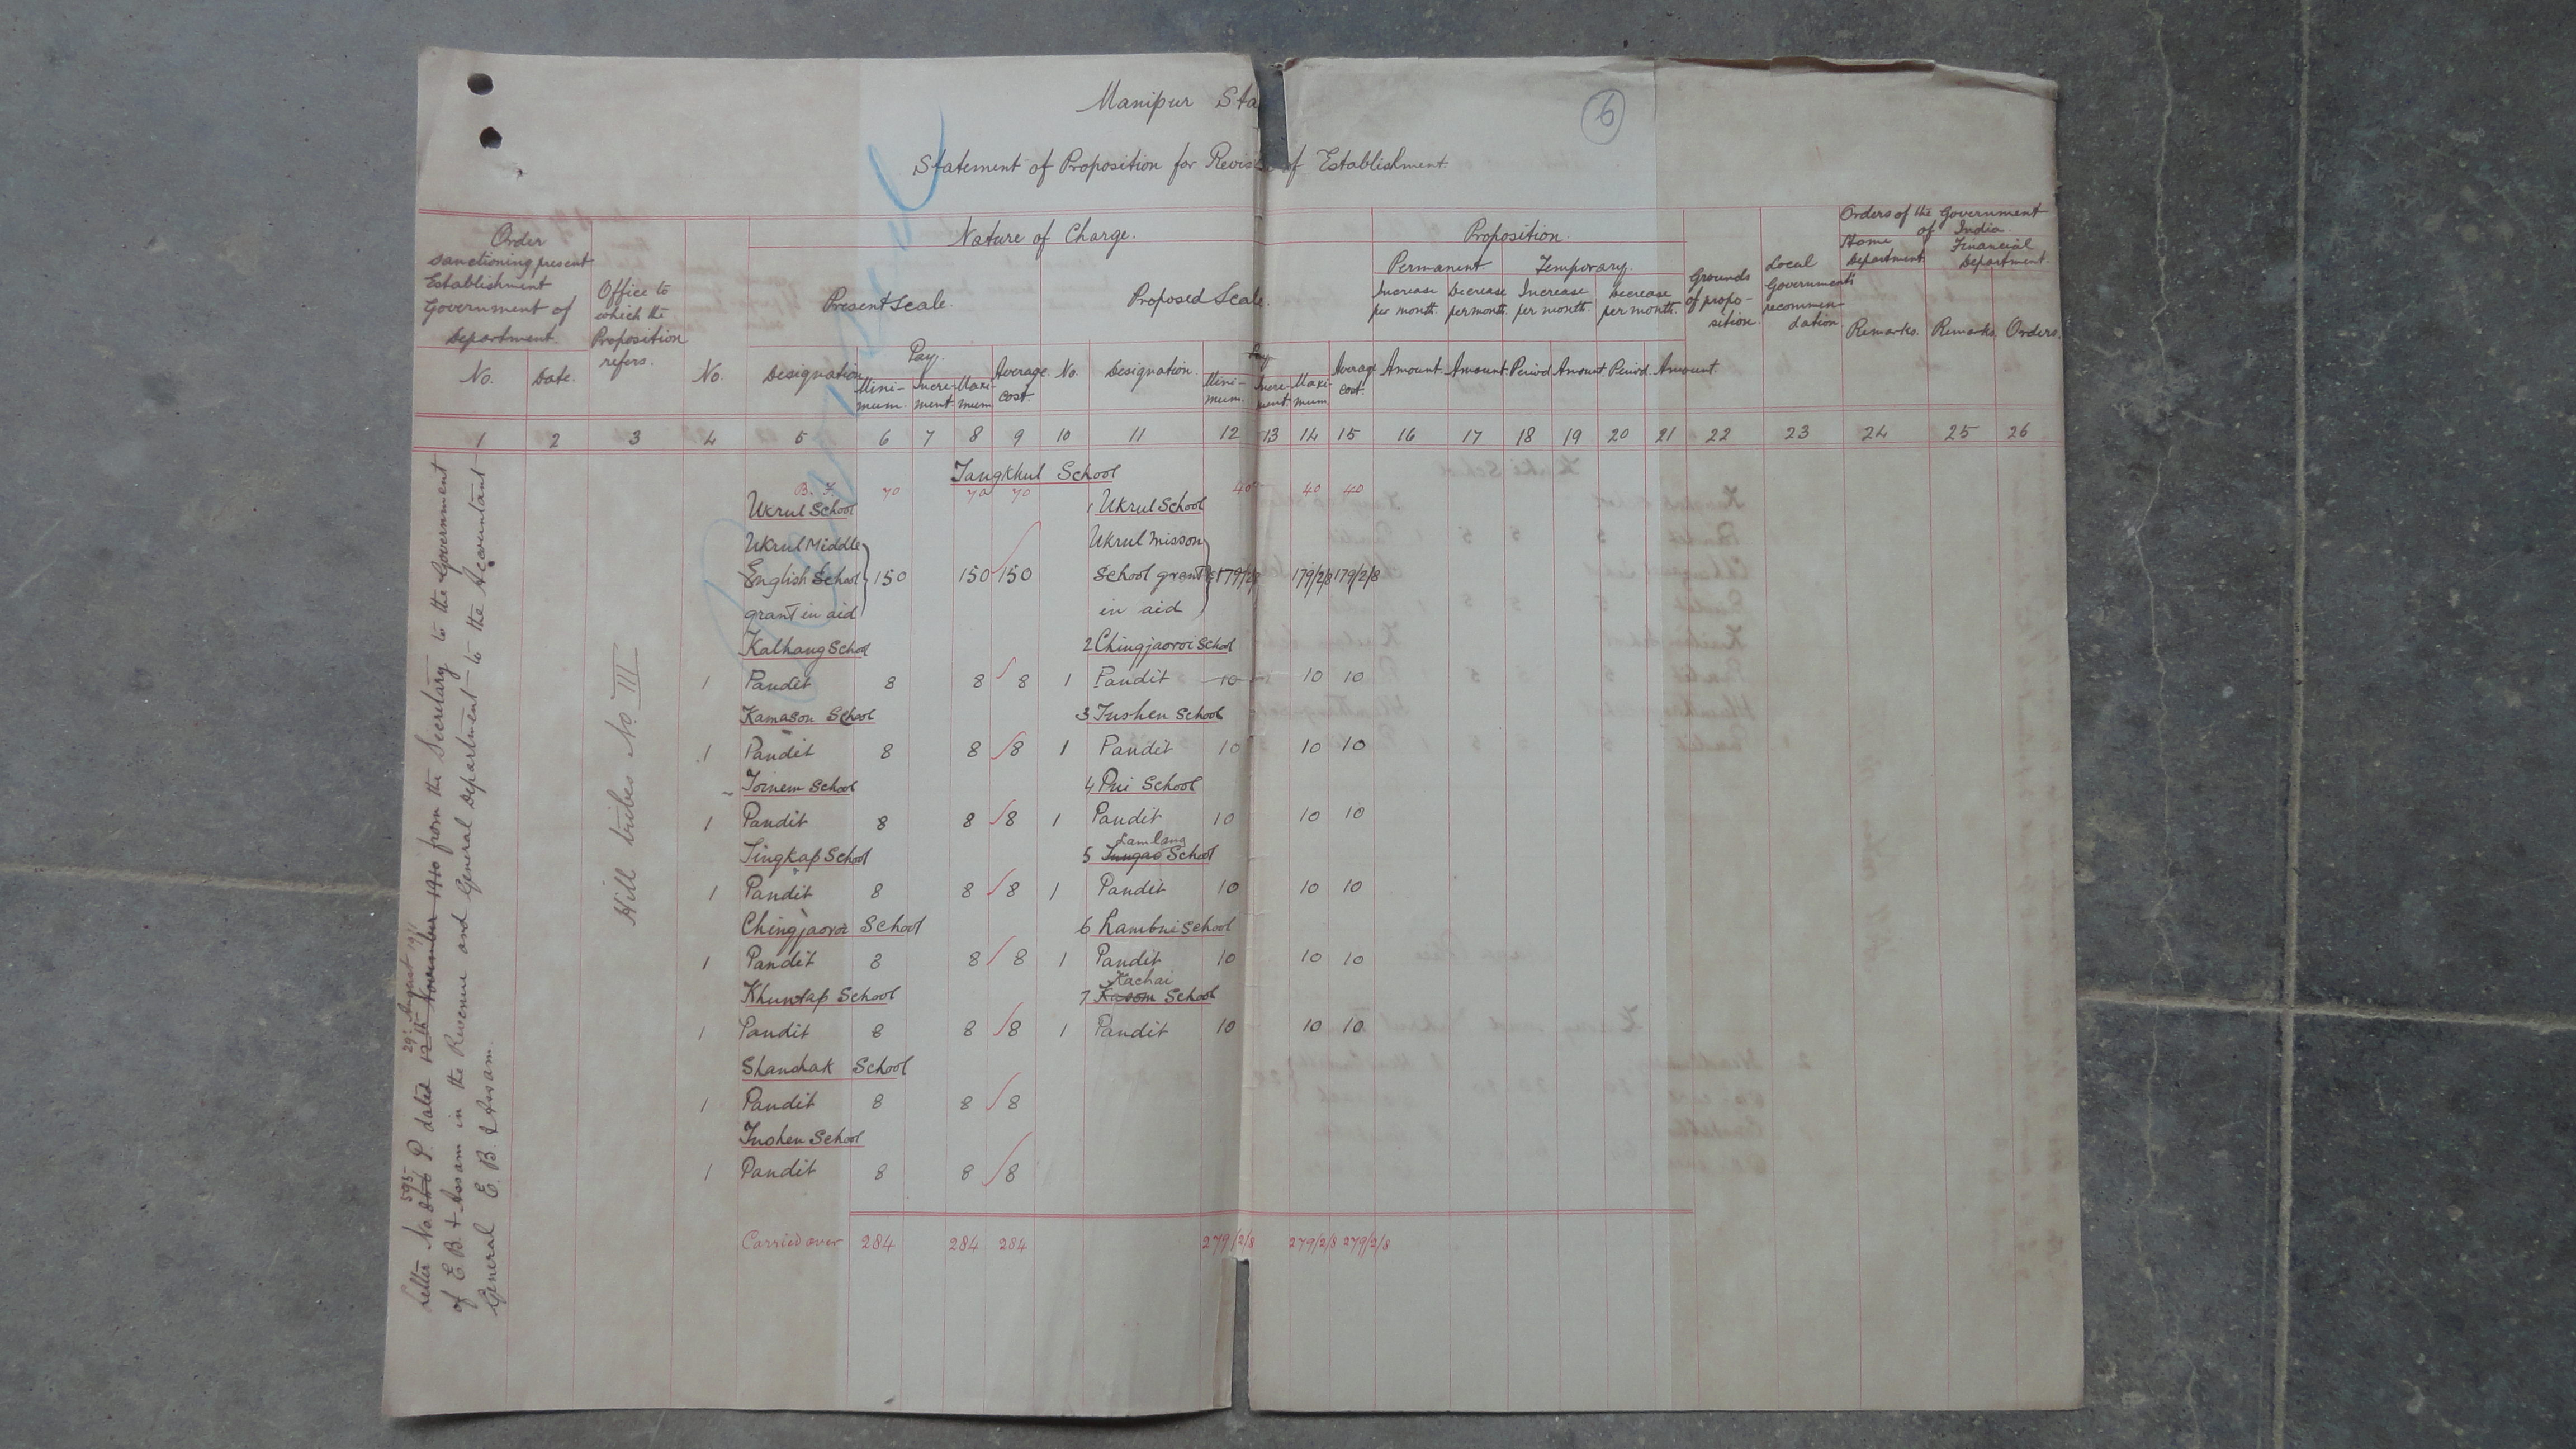 Manipur Sta
6
Statement of Proposition for Revis of Establishment.
Order sanctioning present Establishment Government of Department.
No. Date.
Office to which the Proposition refers.
No.
Nature of Charge.
Present Scale.
Designation
Pay.
Mini-mum. Incre-ment. Maxi-mum
Average cost.
Proposed Scale.
No. Designation.
Pay
Mini-mum. Incre-ment. Maxi-mum
Average cost.
Proposition.
Permanent. Temporary.
Increase per month. Decrease per month. Increase per month. Decrease per month.
Amount. Amount. Period Amount Period. Amount
Grounds of propo-sition.
Local Government's recommen-dation.
Orders of the Government of India.
Home Department. Financial Department.
Remarks. Remarks. Orders.
1 2 3 4 5 6 7 8 9 10 11 12 13 14 15 16 17 18 19 20 21 22 23 24 25 26
Tangkhul School
B. F. 70 70 70 40 40 40
Ukrul School 1 Ukrul School
Ukrul Middle Ukrul Misson
English School 150 150 150 School grant 179/2/8 179/2/8 179/2/8
grant in aid in aid
Kalhang School 2 Chingjaoroi School
1 Pandit 8 8 8 1 Pandit 10 10 10
Kamason School 3 Tushen School
1 Pandit 8 8 8 1 Pandit 10 10 10
Toinem School 4 Pui School
1 Pandit 8 8 8 1 Pandit 10 10 10
Lamlang
Tingkap School 5 Tungao School
1 Pandit 8 8 8 1 Pandit 10 10 10
Chingjaoroi School 6 Rambui School
1 Pandit 8 8 8 1 Pandit 10 10 10
Kachai
Khuntap School 7 Kasom School
1 Pandit 8 8 8 1 Pandit 10 10 10
Shanshak School
1 Pandit 8 8 8
Tushen School
1 Pandit 8 8 8
Carried over 284 284 284 279/2/8 279/2/8 279/2/8
Hill tribes No. III
595 29th August 1911
Letter No. P. dated 12th November 1910 from the Secretary to the Government
of E. B. & Assam in the Revenue and General Department to the Accountant
General E. B. & Assam.